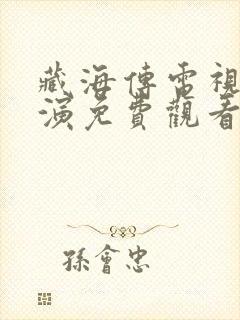 藏海傳電視
演免費觀看
孫會忠